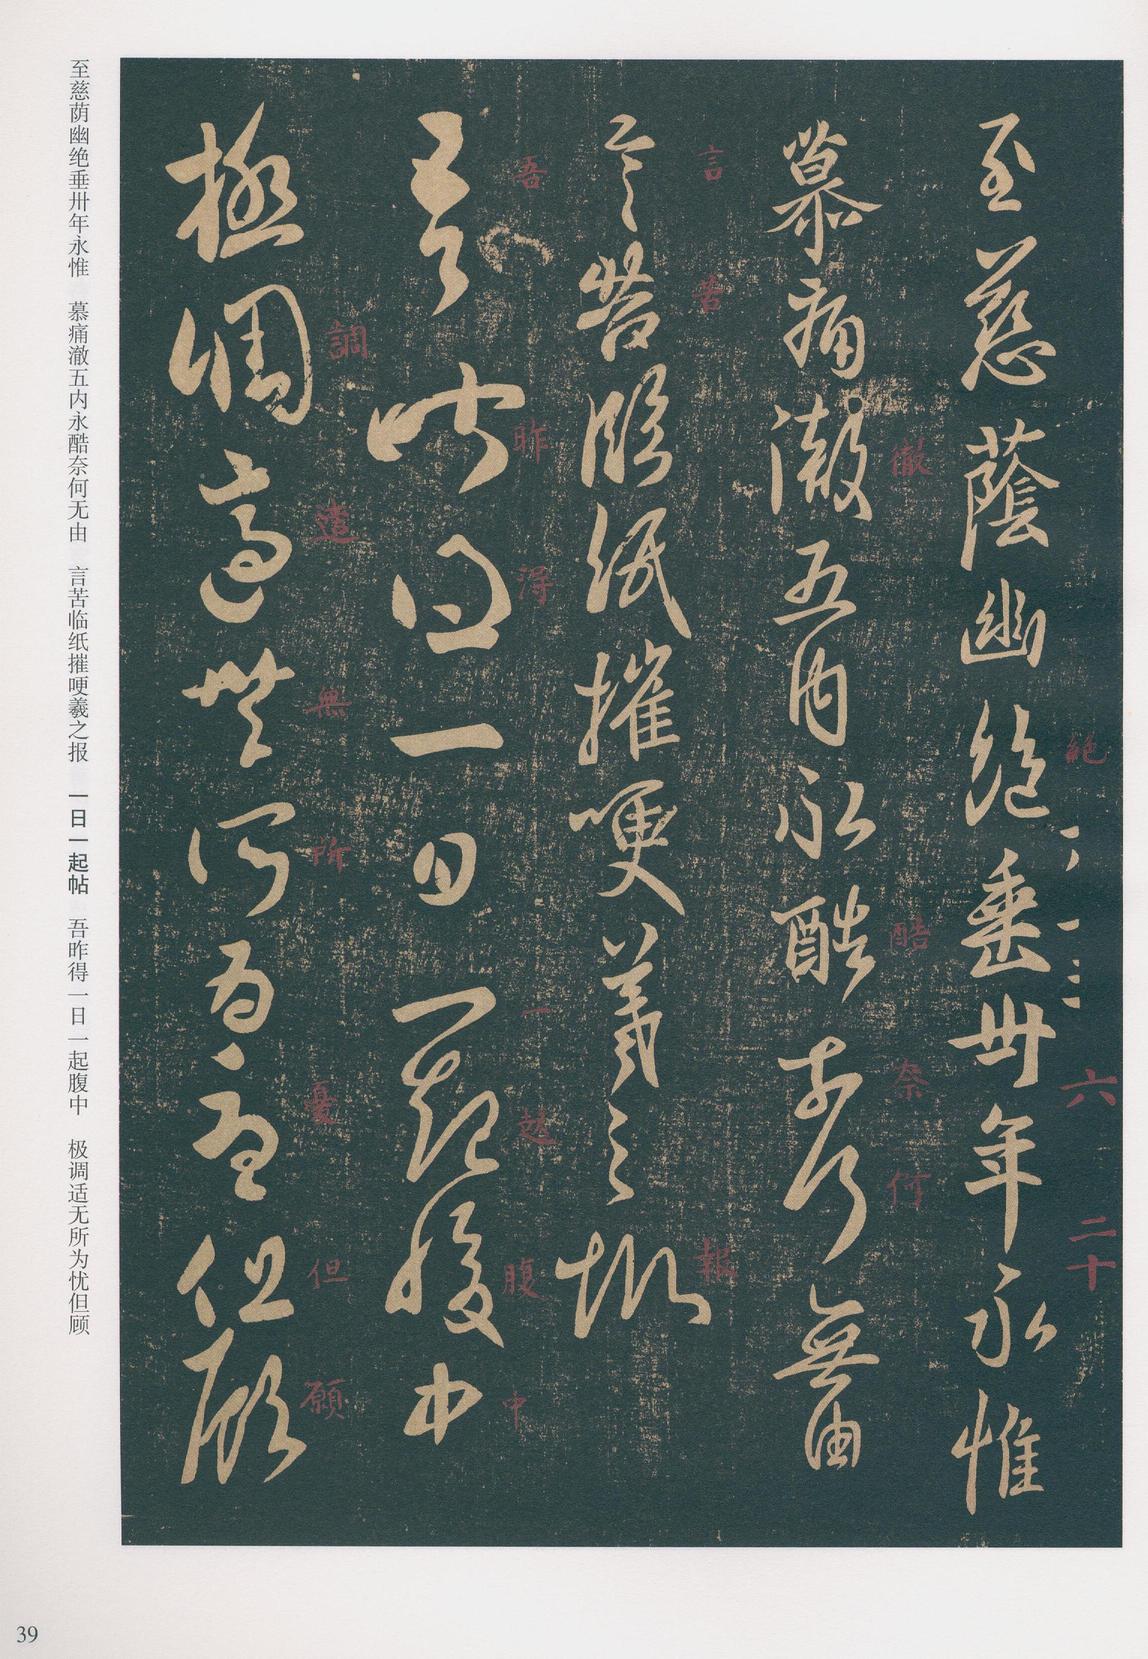 至慈蔭幽絶垂卅年永惟
慕痛澈五内永酷奈何無由
言苦臨紙摧哽羲之報
吾昨得一日一起腹中
極調適無所為憂但顧
絶
六
二十
徹
酷
奈
何
言
苦
報
吾
昨
得
一
起
腹
中
調
適
無
所
憂
但
願
至慈荫幽绝垂卅年永惟 慕痛澈五内永酷奈何无由 言苦临纸摧哽羲之报 一日一起帖 吾昨得一日一起腹中 极调适无所为忧但顾
39